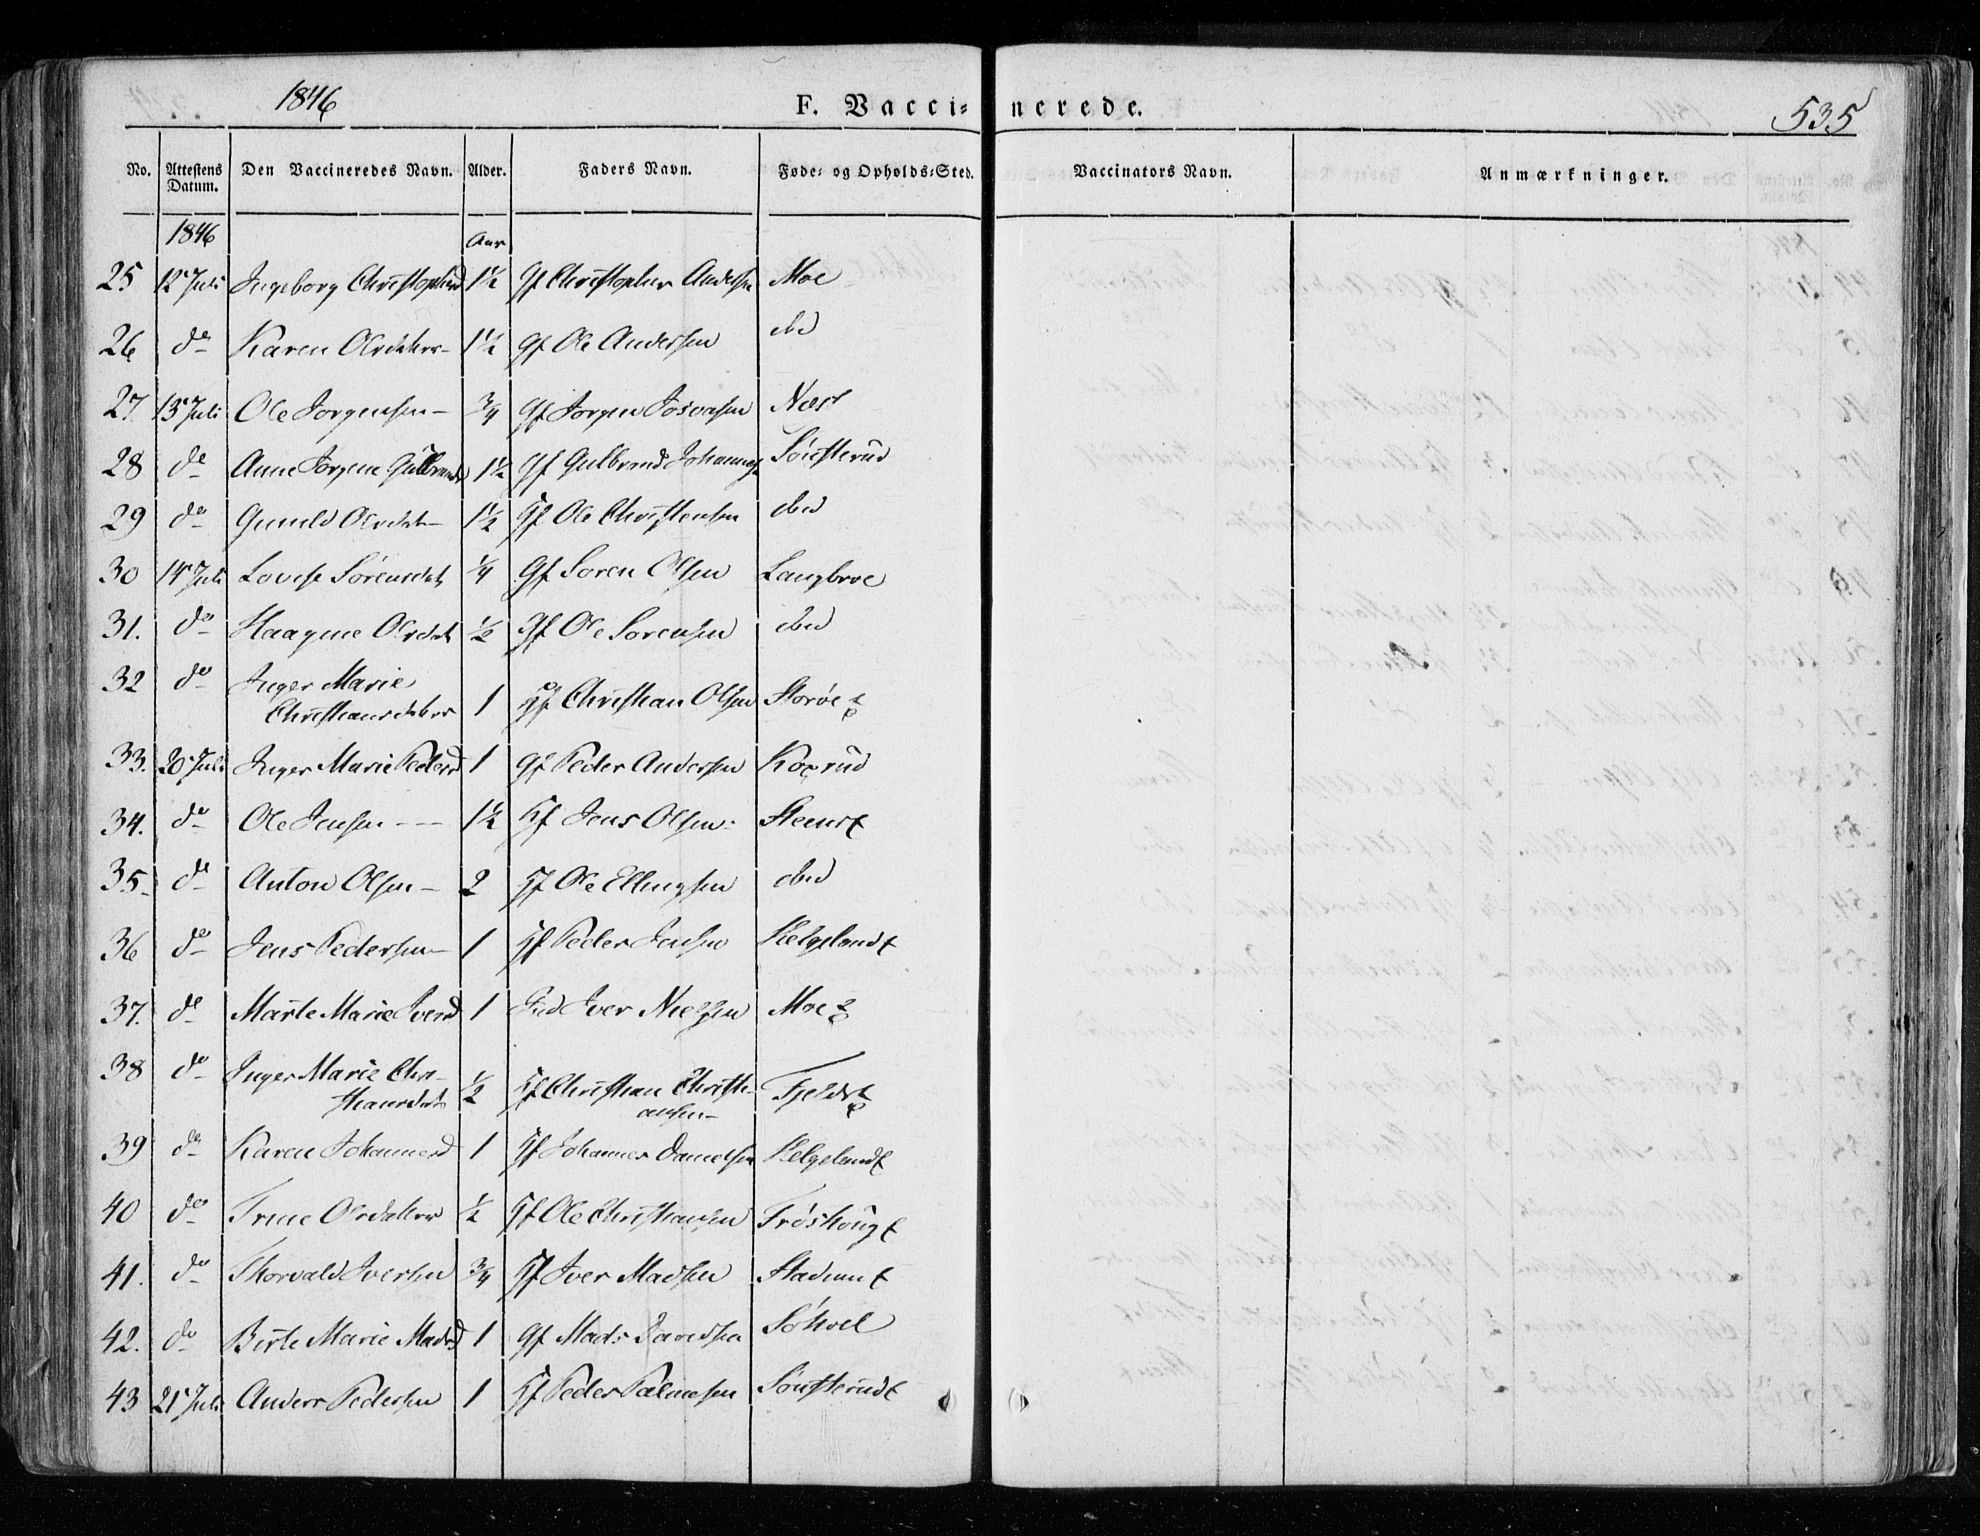 1846 F. Vacci- nerede. 535
No. Attestens Datum. Den Vaccineredes Navn. Alder. Faders Navn. Føde- og Opholds-Sted. Vaccinators Navn. Anmærkninger.
1846 Aar
25 12 Juli Ingeborg Christophersd 1½ Gf Christopher Andersen Moe
26 do Karen Olsdatter 1½ Gf Ole Andersen ibid
27. 13 Juli Ole Jorgensen 3/4 Gf Jorgen Josvasen Næs
28 do Anne Jorgine Gulbrands 1½ Gf Gulbrand Johannes Sønsterud
29 do Gunild Olsdat 1½ Hf Ole Christensen ibid
30 14 Juli Lovise Sørensdat ¼ Gf Soren Olsen Langbroe
31. do Haagine Olsdat ½ Gf Ole Sorensen ibid
32 do Inger Marie
Christiansdatter 1 Hf Christian Olsen Storøe
33. 20 Juli Inger Marie Pedersd 1 Gf Peder Andersen Koxrud
34. do Ole Jensen 1½ Hf Jens Olsen
35. do Anton Olsen 2 Hf Ole Ellingsen ibid
36 do Jens Pedersen 1 Hf Peder Jensen Helgelandt
37. do Marte Marie Iversd 1 Ind Iver Nielsen Moe
38 do Inger Marie Chri-
stiansdat ½ Hf Christian Christi-
ansen
39 do Karen Johannesd 1 Hf Johannes Danielsen Helgelandt
40 do Trine Olsdatter ½ Hf Ole Christiansen Frøshougt
41. do Thorvald Iversen 3/4 Hf Iver Madsen Stadumt
42. do Birte Marie Madsd 1 Gf Mads Davidsen Søhoel
43 21 Juli Anders Pedersen 1 Hf Peder Palmesen Sønsterudt